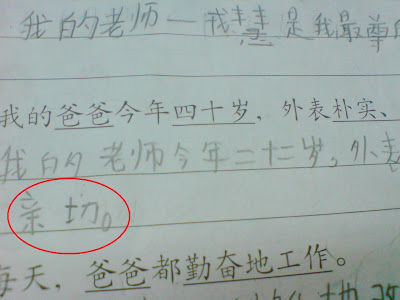 我的老师一 是我最尊
我的爸爸今年四十岁，外表朴实、
我的老师今年二十二岁，外表
亲切。
每天，爸爸都勤奋地工作。